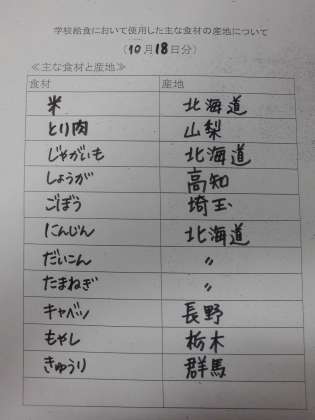 学校給食において使用した主な食材の産地について
(10月18日分)
≪主な食材と産地≫
食材 産地
米 北海道
とり肉 山梨
じゃがいも 北海道
しょうが 高知
ごぼう 埼玉
にんじん 北海道
だいこん 〃
たまねぎ 〃
キャベツ 長野
もやし 栃木
きゅうり 群馬